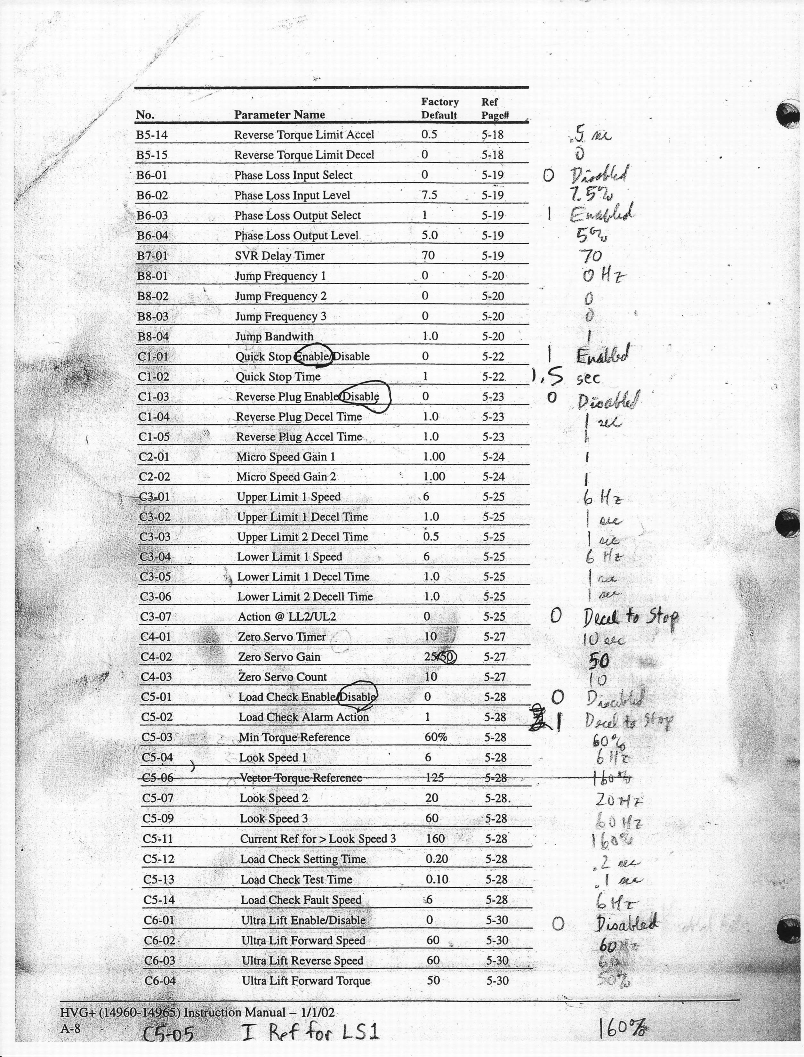 No. Parameter Name Factory Default Ref Page#
B5-14 Reverse Torque Limit Accel 0.5 5-18 .5 sec
B5-15 Reverse Torque Limit Decel 0 5-18 0
B6-01 Phase Loss Input Select 0 5-19 0 Disabled
B6-02 Phase Loss Input Level 7.5 5-19 7.5%
B6-03 Phase Loss Output Select 1 5-19 1 Enabled
B6-04 Phase Loss Output Level 5.0 5-19 5%
B7-01 SVR Delay Timer 70 5-19 70
B8-01 Jump Frequency 1 0 5-20 0 Hz
B8-02 Jump Frequency 2 0 5-20 0
B8-03 Jump Frequency 3 0 5-20 0
B8-04 Jump Bandwith 1.0 5-20 1
C1-01 Quick Stop Enable/Disable 0 5-22 1 Enabled
C1-02 Quick Stop Time 1 5-22 1.5 sec
C1-03 Reverse Plug Enable/Disable 0 5-23 0 Disabled
C1-04 Reverse Plug Decel Time 1.0 5-23 1 sec
C1-05 Reverse Plug Accel Time 1.0 5-23 1
C2-01 Micro Speed Gain 1 1.00 5-24 1
C2-02 Micro Speed Gain 2 1.00 5-24 1
C3-01 Upper Limit 1 Speed 6 5-25 6 Hz
C3-02 Upper Limit 1 Decel Time 1.0 5-25 1 sec
C3-03 Upper Limit 2 Decel Time 0.5 5-25 1 sec
C3-04 Lower Limit 1 Speed 6 5-25 6 Hz
C3-05 Lower Limit 1 Decel Time 1.0 5-25 1 sec
C3-06 Lower Limit 2 Decell Time 1.0 5-25 1 sec
C3-07 Action @ LL2/UL2 0 5-25 0 Decel to Stop
C4-01 Zero Servo Timer 10 5-27 10 sec
C4-02 Zero Servo Gain 25/50 5-27 50
C4-03 Zero Servo Count 10 5-27 10
C5-01 Load Check Enable/Disable 0 5-28 0 Disabled
C5-02 Load Check Alarm Action 1 5-28 1 Decel to Stop
C5-03 Min Torque Reference 60% 5-28 60%
C5-04 Look Speed 1 6 5-28 6 Hz
C5-06 Vector Torque Reference 125 5-28 160%
C5-07 Look Speed 2 20 5-28. 20 Hz
C5-09 Look Speed 3 60 5-28 60 Hz
C5-11 Current Ref for > Look Speed 3 160 5-28 160%
C5-12 Load Check Setting Time 0.20 5-28 .2 sec
C5-13 Load Check Test Time 0.10 5-28 .1 sec
C5-14 Load Check Fault Speed 6 5-28 6 Hz
C6-01 Ultra Lift Enable/Disable 0 5-30 0 Disabled
C6-02 Ultra Lift Forward Speed 60 5-30 60 Hz
C6-03 Ultra Lift Reverse Speed 60 5-30 60
C6-04 Ultra Lift Forward Torque 50 5-30 50%
HVG+ (14960-14965) Instruction Manual – 1/1/02
A-8 C5-05 I Ref for LS1 160%